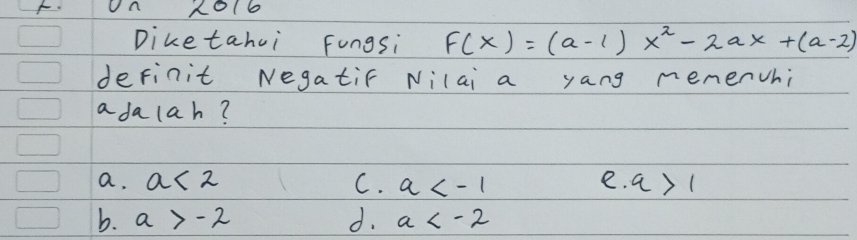 2. Un 2016
Diketahui Fungsi F(x) = (a-1) x² - 2ax + (a-2)
definit Negatif Nilai a yang memenuhi
adalah?
a. a < 2 c. a < -1 e. a > 1
b. a > -2 d. a < -2